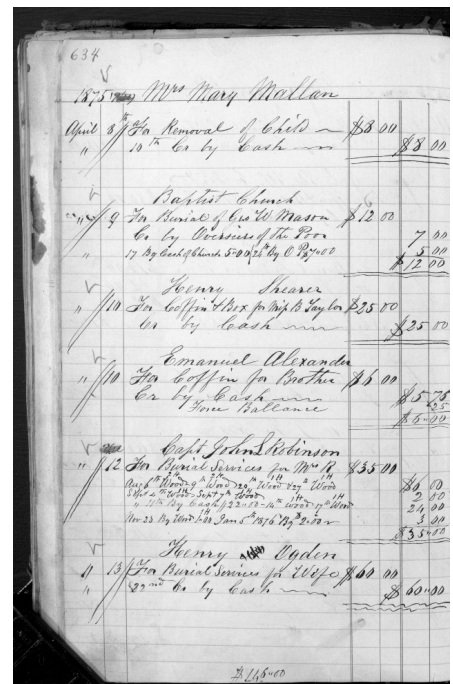 634
1875 Mrs Mary Mallan
April 8th For Removal of Child $8 00
" 10th Cr by Cash $8 00
Baptist Church
" 9 For Burial of Geo W Mason $12 00
Cr by Overseers of the Poor 7 00
17 By Cash of Church 5-00 24th By O P $7-00 5 00
$12 00
Henry Shearer
" 10 For Coffin & Box for Miss B Taylor $25 00
Cr by Cash $25 00
Emanuel Alexander
" 10 For Coffin for Brother $6 00
Cr by Cash $5 75
Ballance 25
$6-00
Capt John S Robinson
" 12 For Burial Services for Mrs R $35 00
Aug 6th Wood 9th Wood 20th Wood & 27th Wood $6 00
Sept 4th Wood Sept 7th Wood 2 00
" 11th By Cash $22-00 14th Wood 17th Wood 24 00
Nov 23 By Wood 1-00 Jan 5th 1876 By 2-00 3 00
$35-00
Henry Ogden
" 13 For Burial Services for Wife $60 00
" 22nd Cr by Cash $60-00
$146-00